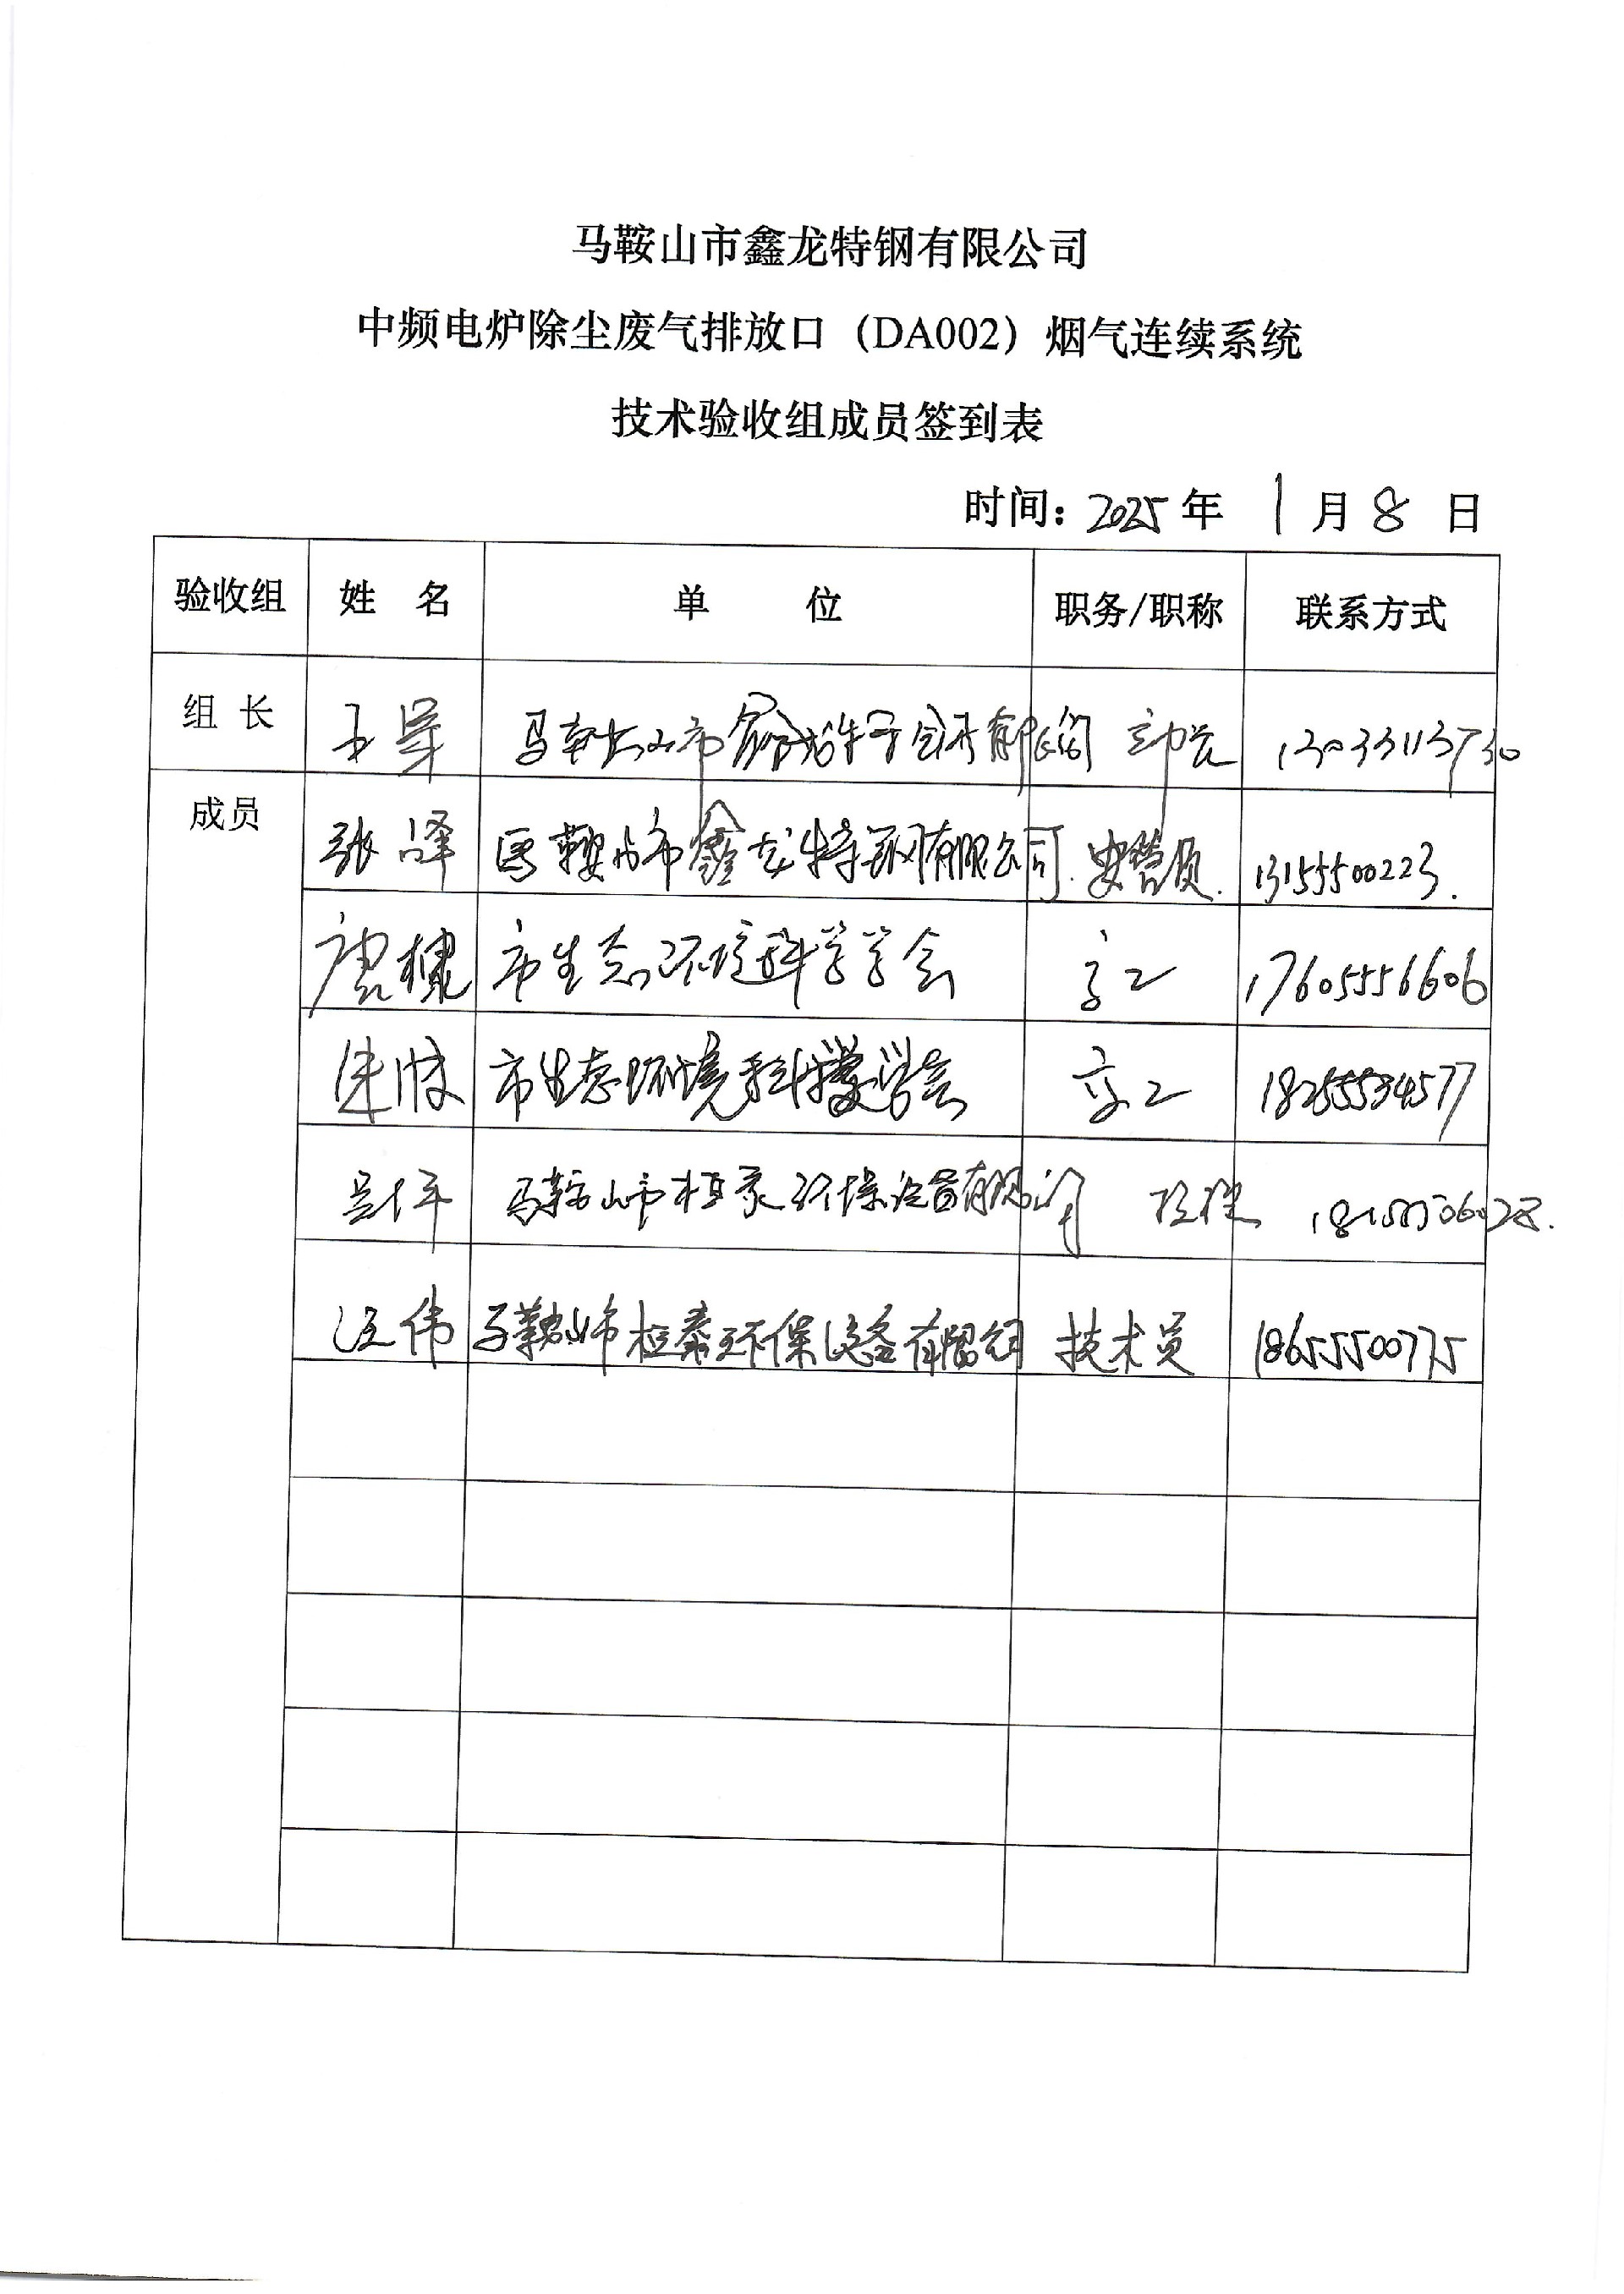 马鞍山市鑫龙特钢有限公司
中频电炉除尘废气排放口（DA002）烟气连续系统
技术验收组成员签到表
时间：2025年 1月8 日
验收组 姓 名 单 位 职务/职称 联系方式
组 长 王 马鞍山市鑫龙特钢有限公司 部长
成员 张 马鞍山市鑫龙特钢有限公司. 安管员. 13155500223.
唐 市生态环境科学学会 高工 17605556606
朱 市生态环境科学学会 高工 18255534577
马鞍山市桓泰环保设备有限公司
汪伟 马鞍山市桓泰环保设备有限公司 技术员 18655500775